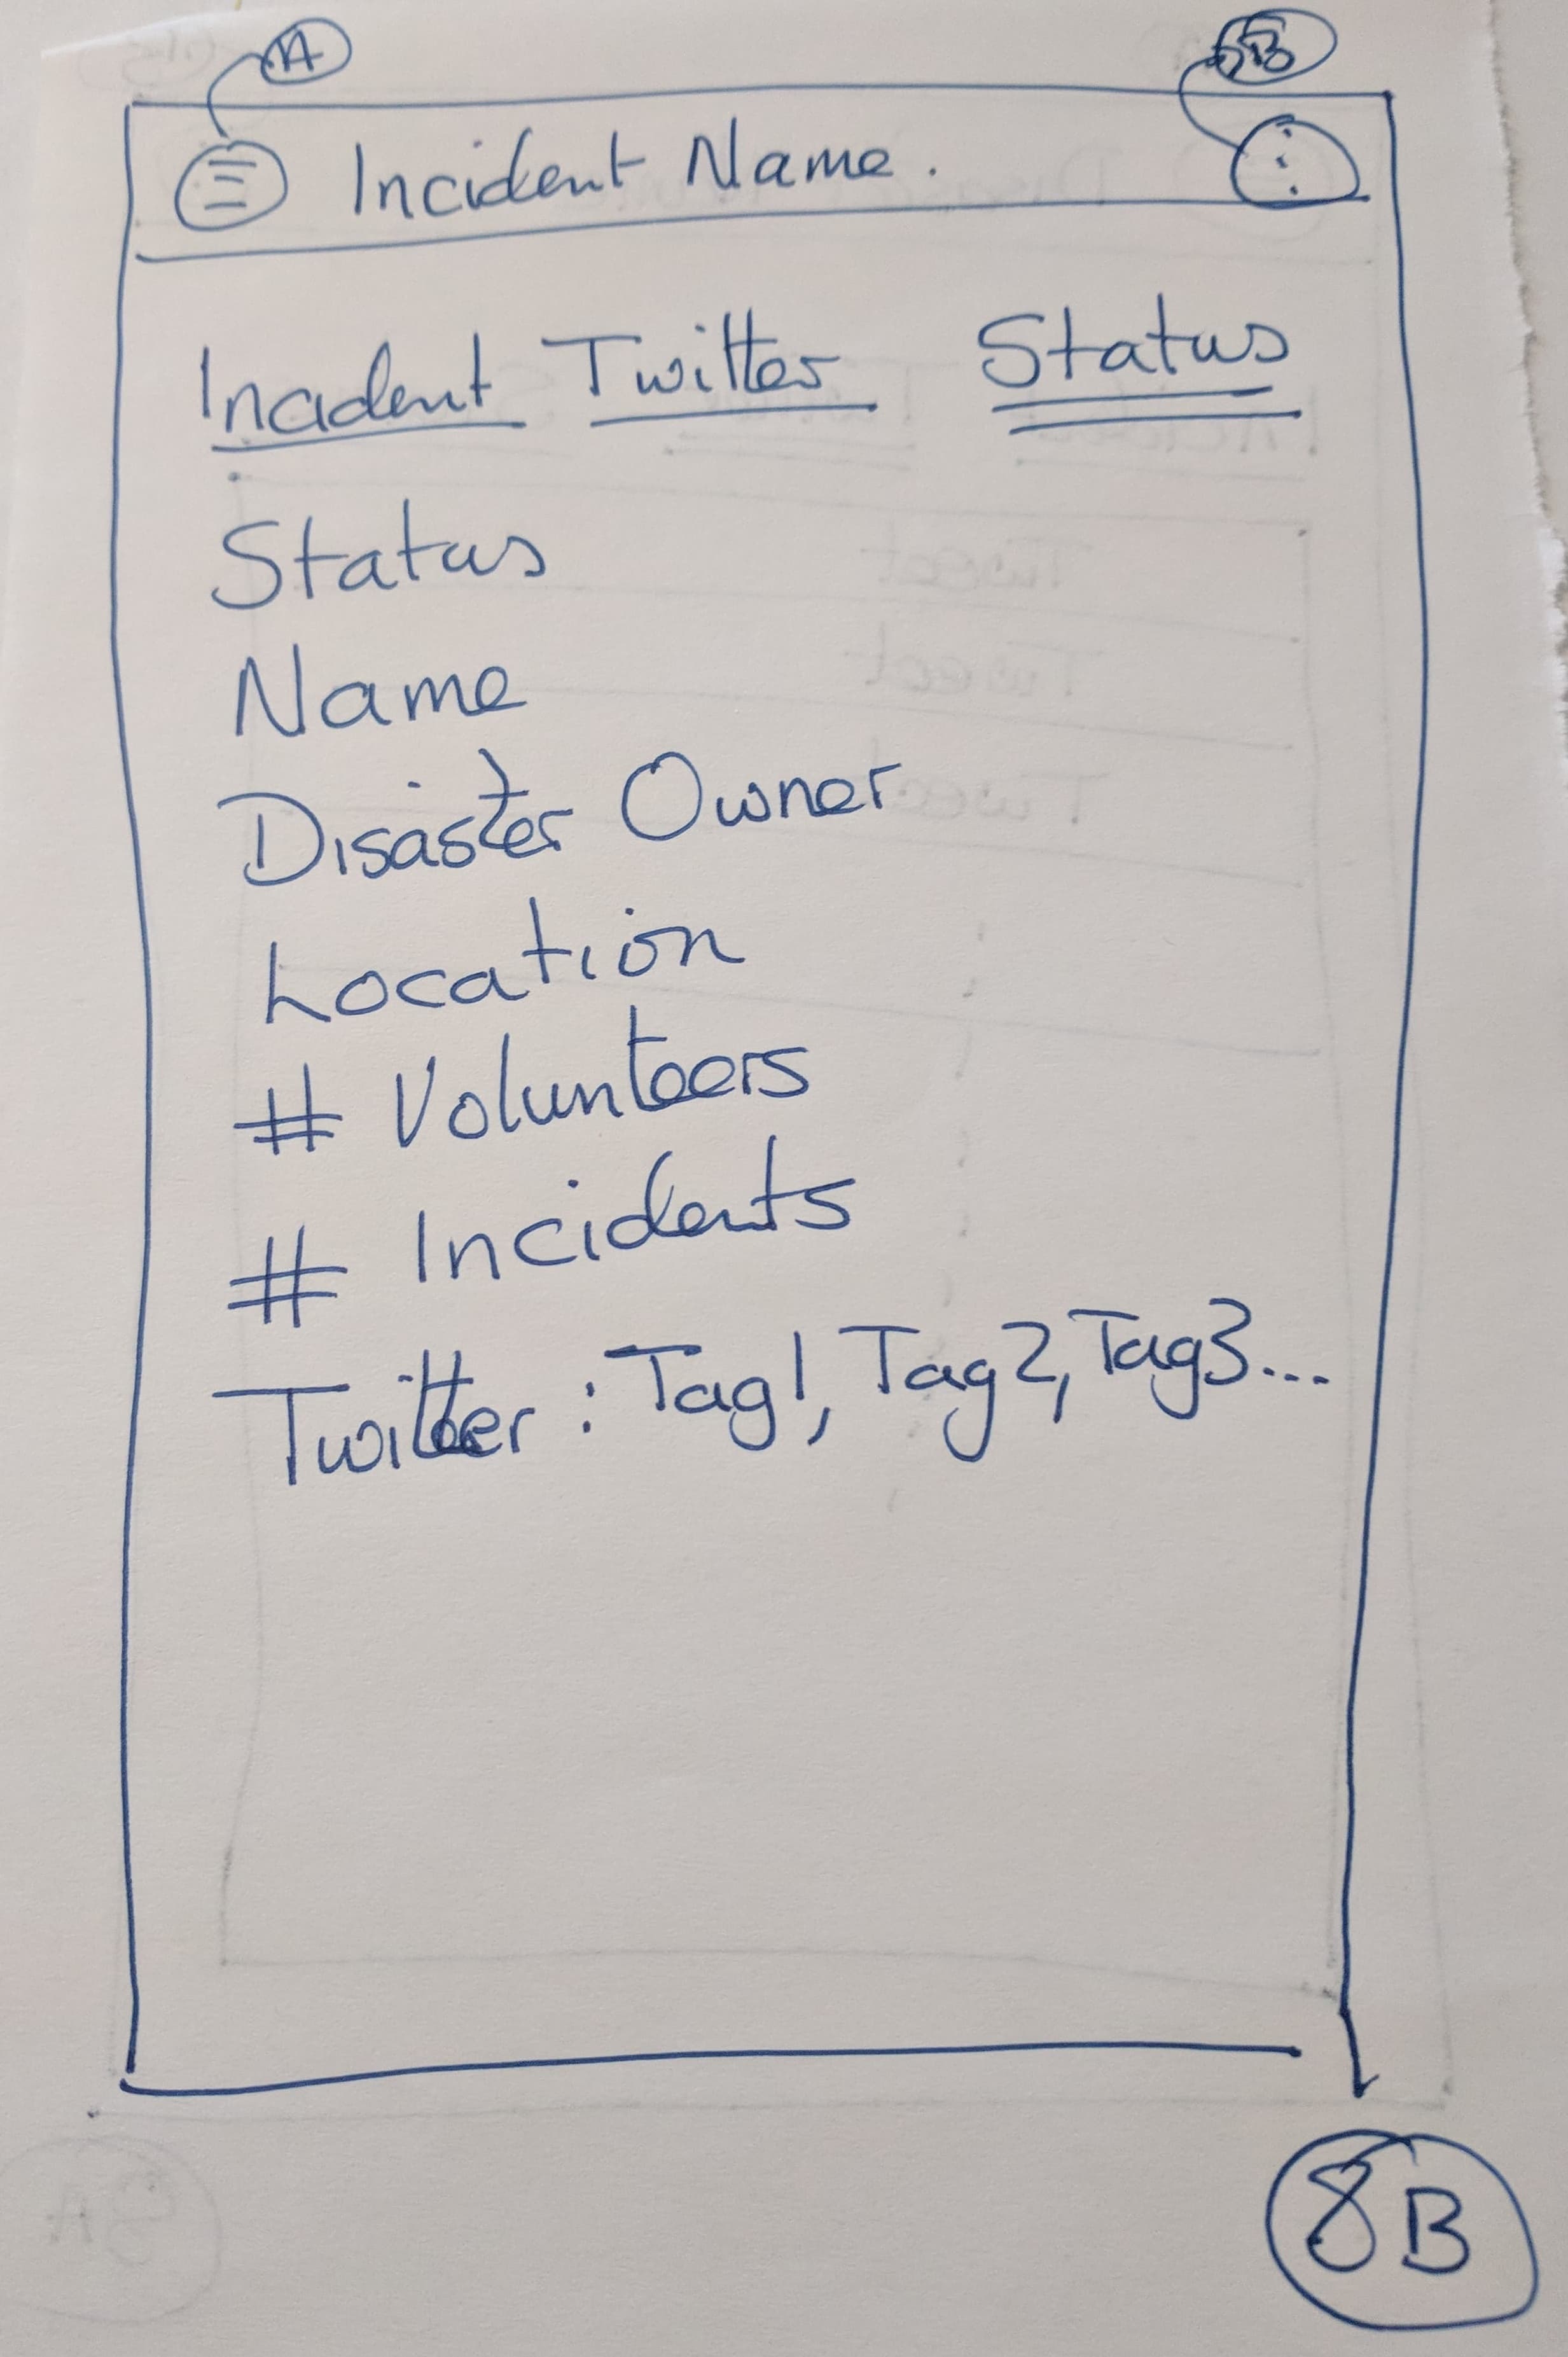 1A
Incident Name.
Incident Twitter Status
Status
Name
Disaster Owner
Location
# Volunteers
# Incidents
Twitter : Tag1, Tag2, Tag3...
8B